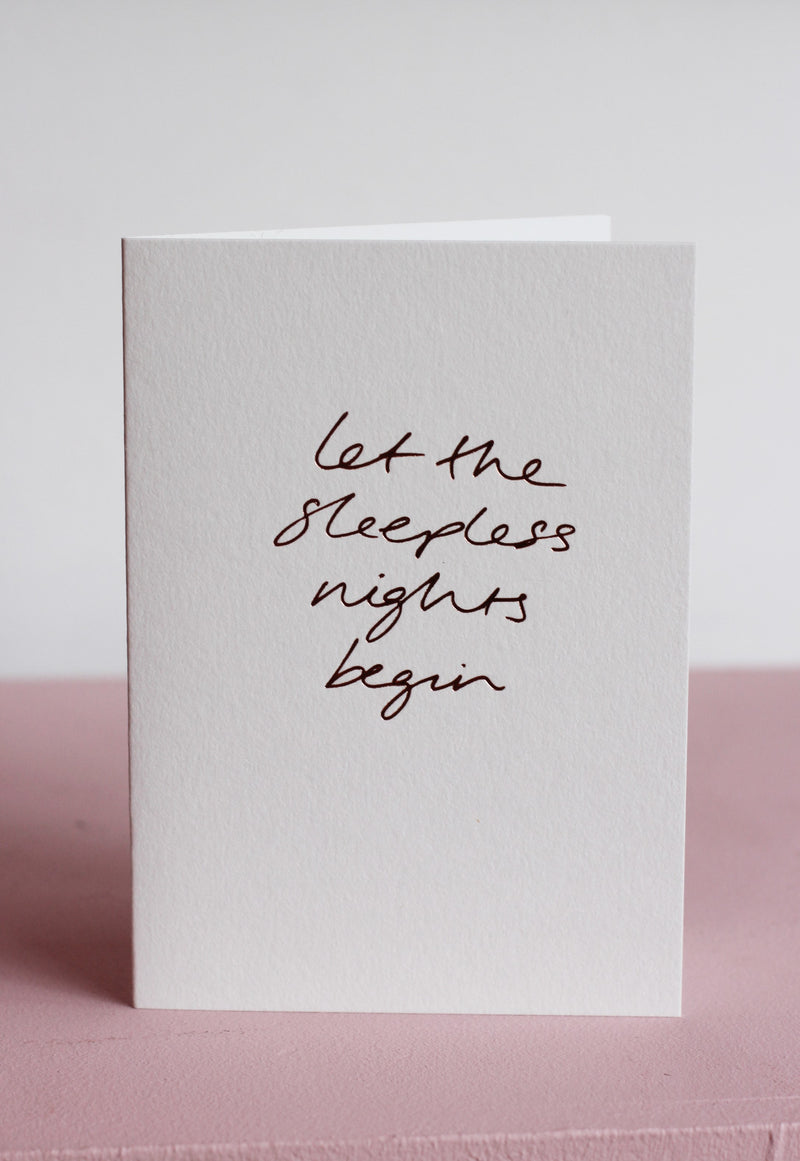 let the
sleepless
nights
begin